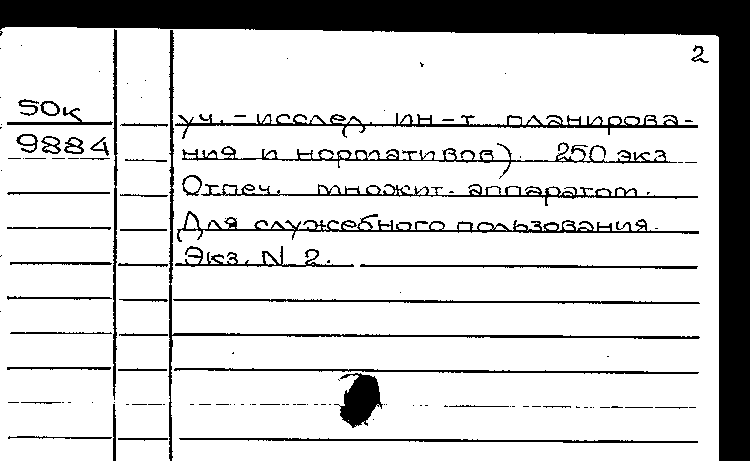 2
50к
9884
уч.-исслед. ин-т планирова-
ния и нормативов). 250 экз
Отпеч. множит. аппаратом.
Для служебного пользования.
Экз. N 2.